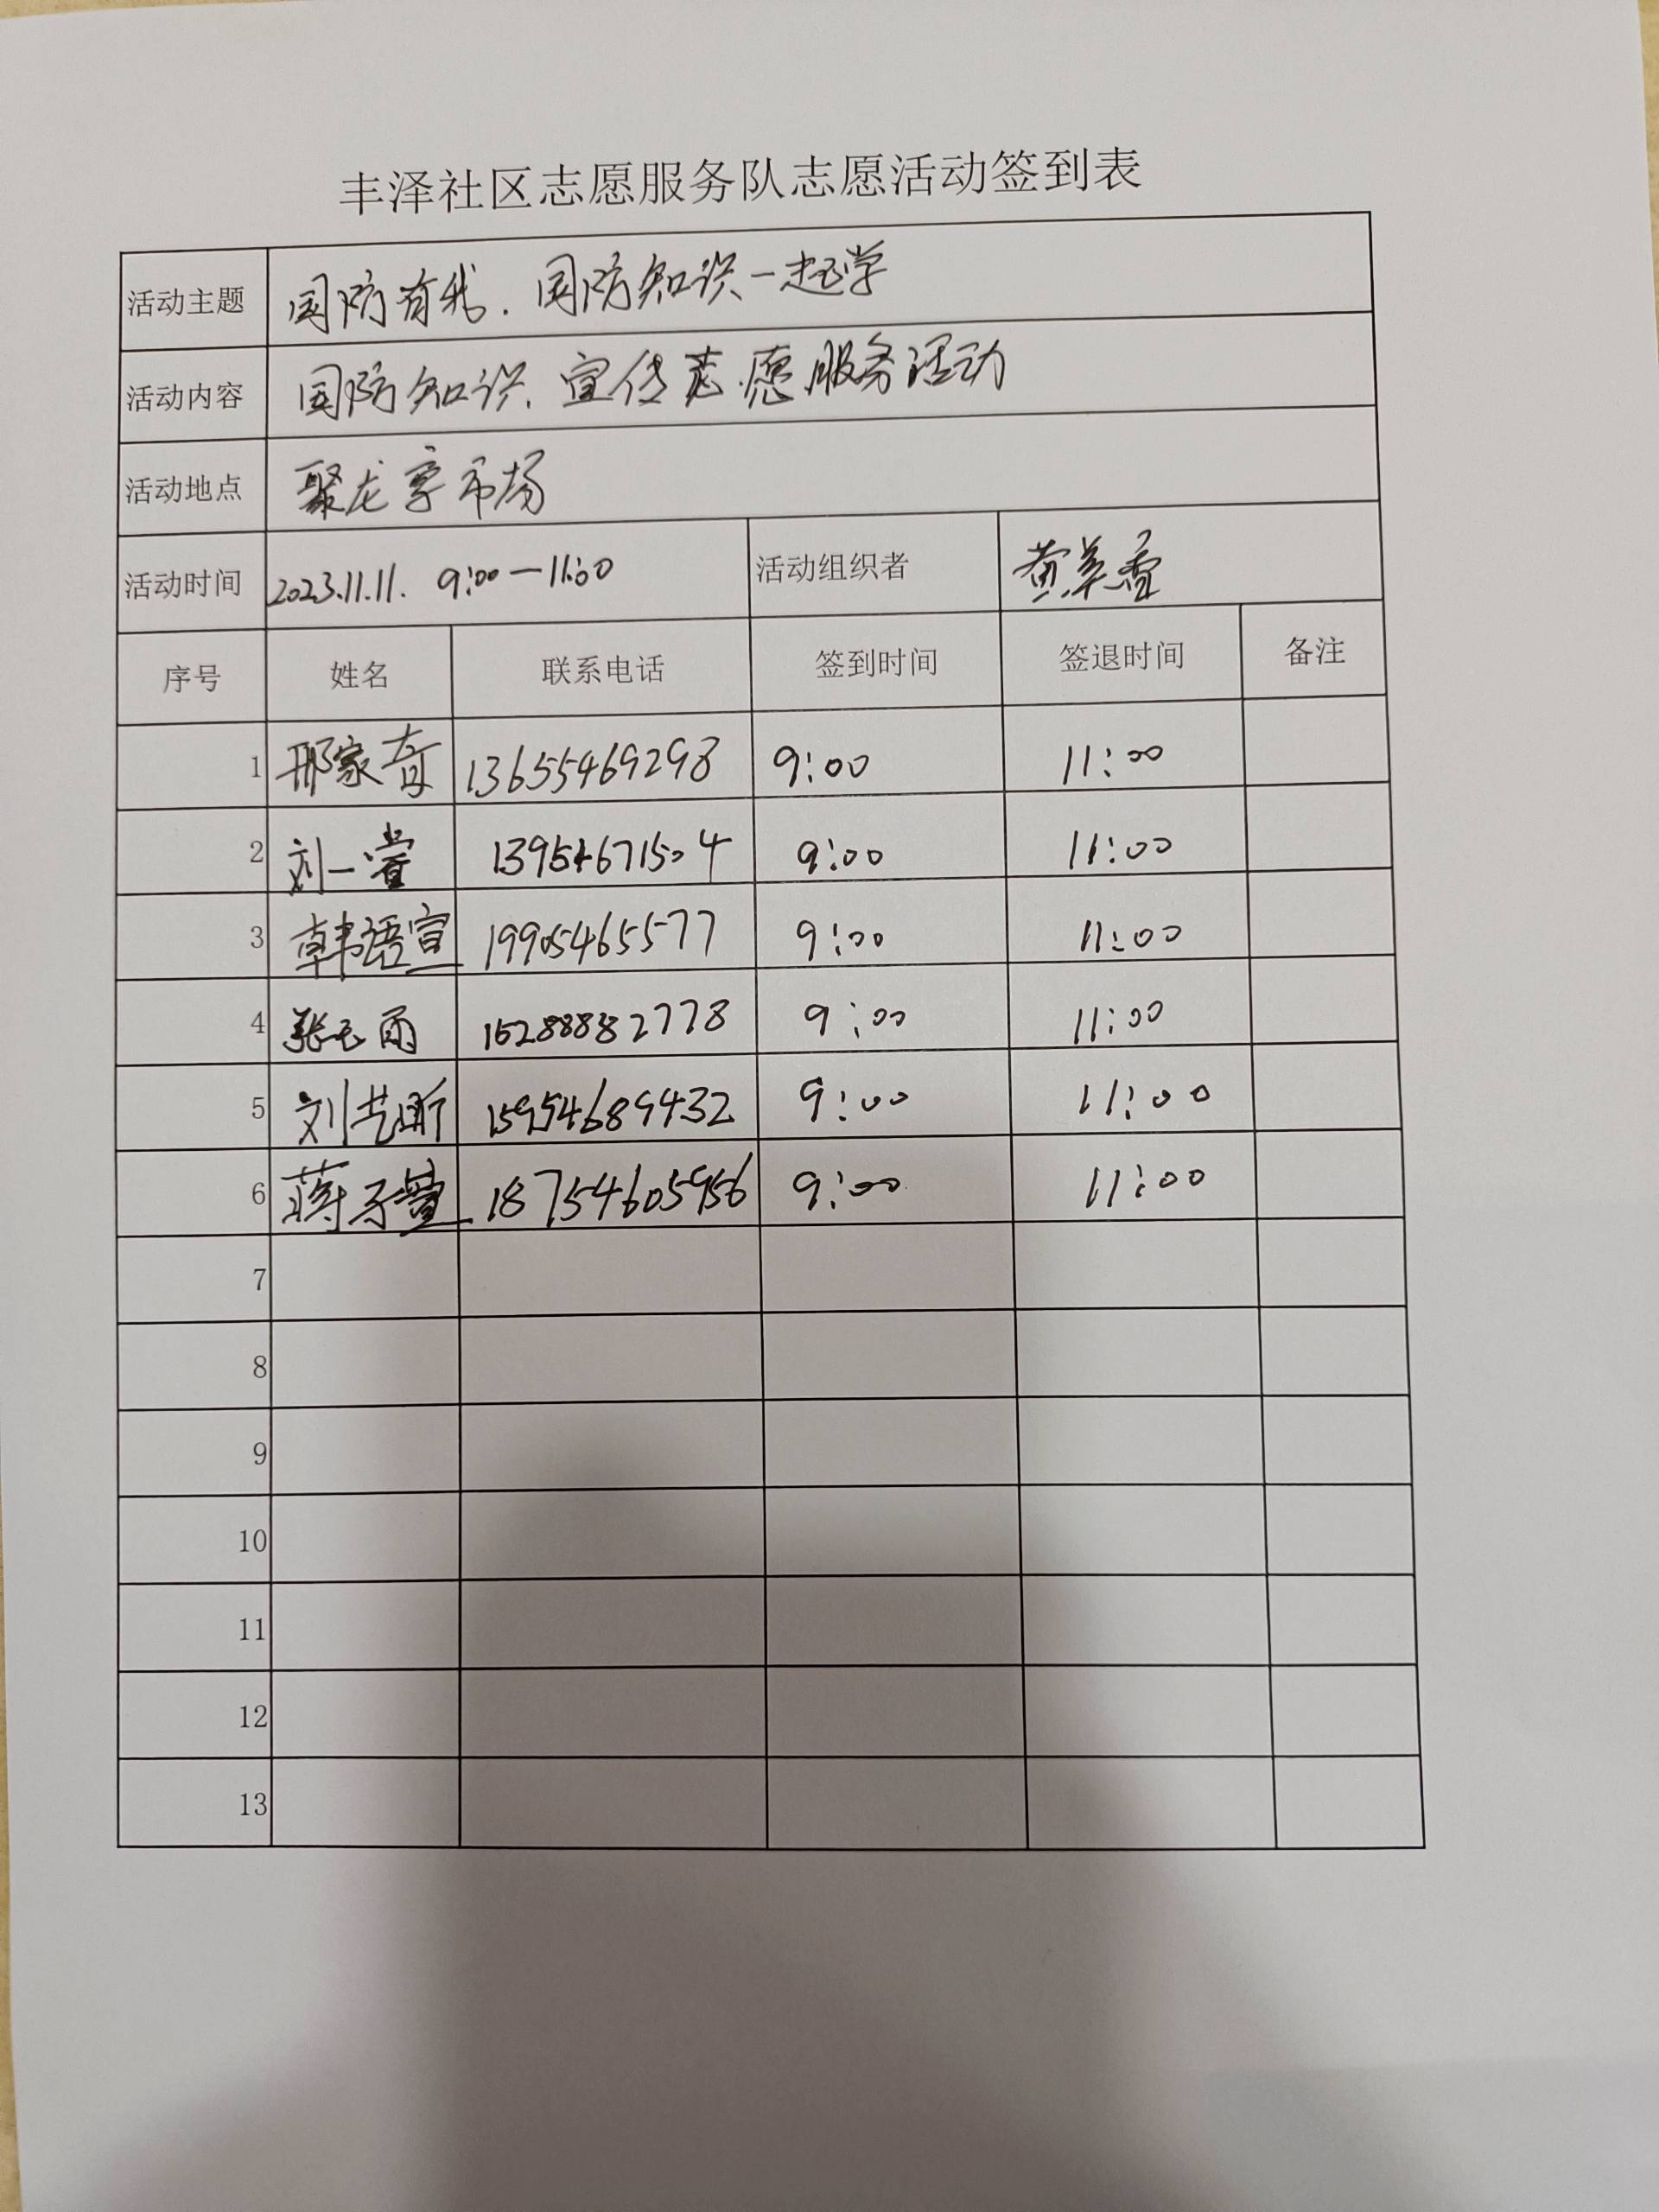 丰泽社区志愿服务队志愿活动签到表
活动主题 国防有我.国防知识一起学
活动内容 国防知识.宣传志愿服务活动
活动地点 聚龙 市场
活动时间 2023.11.11. 9:00—11:00 活动组织者 黄
序号 姓名 联系电话 签到时间 签退时间 备注
1 邢家 13655469298 9:00 11:00
2 刘一萱 13954671504 9:00 11:00
3 韩语宣 19905465577 9:00 11:00
4 张 雨 15288882778 9:00 11:00
5 刘艺昕 15954689432 9:00 11:00
6 蒋子萱 18754605956 9:00 11:00
7
8
9
10
11
12
13